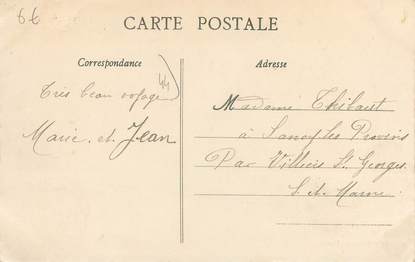 66
CARTE POSTALE
Correspondance
44
Très beau voyage
Marie et Jean
Adresse
Madame Thibaut
à Sancy les Provins
Par Villiers St Georges
S. et. Marne